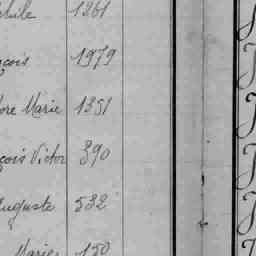 phile 1261
çois 1979
ore Marie 1351
çois Victor 390
Auguste 532
Marie 150